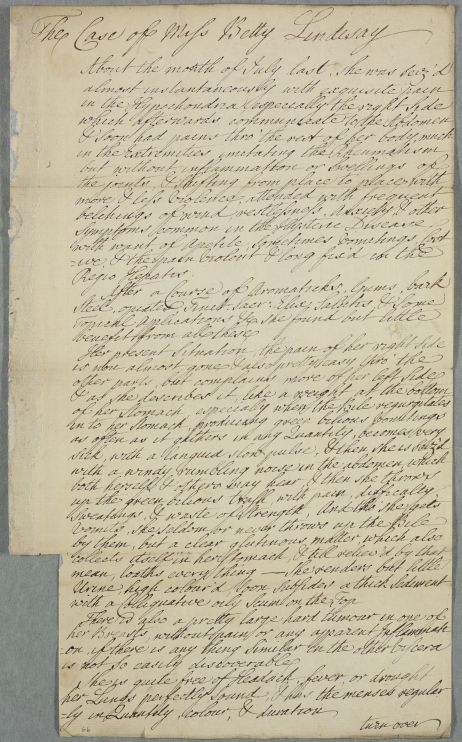 The Case of Miss Betty Lindesay
About the month of July last, She was seiz'd
almost instantaneously with exquisite pain
in the Hypochondria, especially the right Side
which afterwards communicate to the Abdomen
& soon had pains thro' the rest of her body, much
in the Extremities, imitating the Rheumatism
but without inflammation or swellings of
the joints, & shifting from place to place with
more & less violence, attended with frequent
belchings of wind, restlessness, Anxiety & other
Symptoms common in the Hysteric Disease
with want of Apetite, sometimes Vomitings Cost
-ive, & the pain violent & long fix'd in the
Regio Hepatis.
After a Course of Aromaticks, Gums, bark
Steel, opiats, Tinct: Sacr: & some
Topical Applications &c she found but little
benefit from all these
Her present situation, the pain of her right Side
is now almost gone & also pretty easy thro' the
other parts, but complains more of her left Side
& as she describes it, like a weight at the bottom
of her Stomach, especially when the Bile regurgitates
in to her Stomach, producing green bilious Vomitings
as often as it gathers in any Quantity, becomes very
sick, with a languid slow pulse, & then she is seiz'd
with a windy, rumbling noise in the abdomen, which
both herself & others may hear, & then she throws
up the green bilious trash with pain, difficulty,
Sweatings, & waste of Strength, And tho' she gets
Vomits, she seldom or never throws up the Bile
by them, but a clear glutinous matter, which also
collects itself in her Stomach, & till reliev'd by that
mean, loaths every thing — She renders but little
Urine, high colour'd, soon subsides a thick Sediment
with a Colliquative oily Scum on the Top
There is also a pretty large hard tumour in one of
her Breasts, without pain or any apparent Inflammati
-on, if there is any thing similar in the other Viscera
is not so easily discoverable,
She is quite free of Headach, fever, or drought
her Lungs perfectly sound, & has the menses regular
-ly in Quantity, Colour, & duration
turn over
66